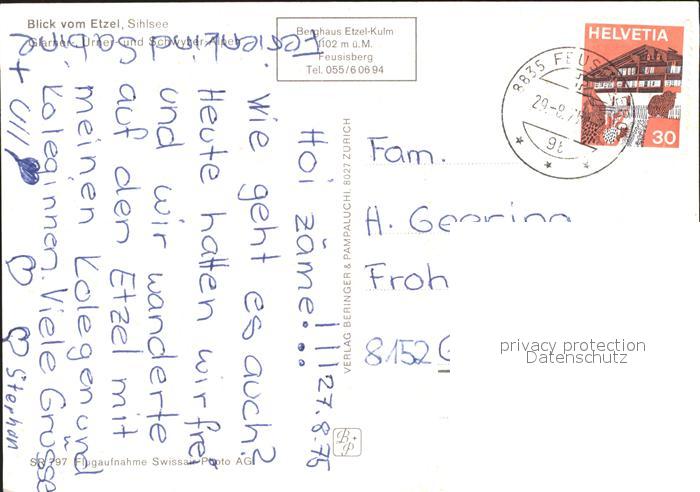 Blick vom Etzel, Sihlsee
Glarner-, Urner- und Schwyzer-Alpen
Berghaus Etzel-Kulm
1102 m ü.M.
Feusisberg
Tel. 055/6 06 94
HELVETIA
30
8835 FEUSISBERG
29.-8.75
Hoi zäme...!!! 27.8.75
Wie geht es auch?
Heute hatten wir frei
und wir wanderte
auf den Etzel mit
meinen Kolegen und
Koleginnen. Viele Grüsse
Sabine
+ Ulli
Stephan
Fam.
H. Geering
Froh
8152 G
VERLAG BERINGER & PAMPALUCHI, 8027 ZÜRICH
B+P
SR 797 Flugaufnahme Swissair-Photo AG
privacy protection
Datenschutz